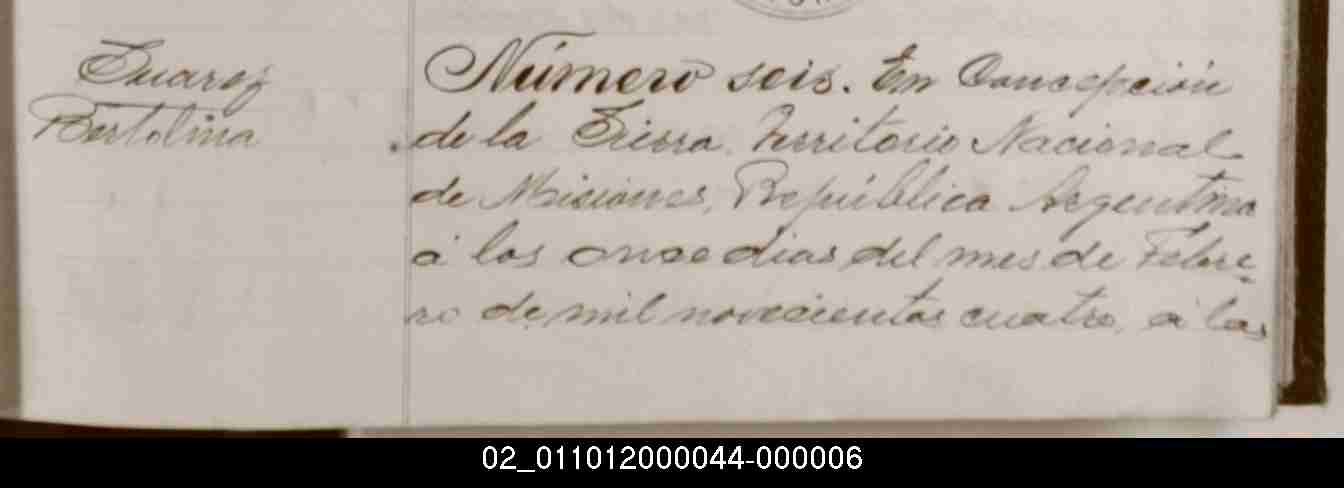 Suarez
Bertolina
Número seis. En Concepción
de la Sierra, Territorio Nacional
de Misiones, República Argentina
á los once dias del mes de Febre-
ro de mil novecientos cuatro, á las
02_011012000044-000006